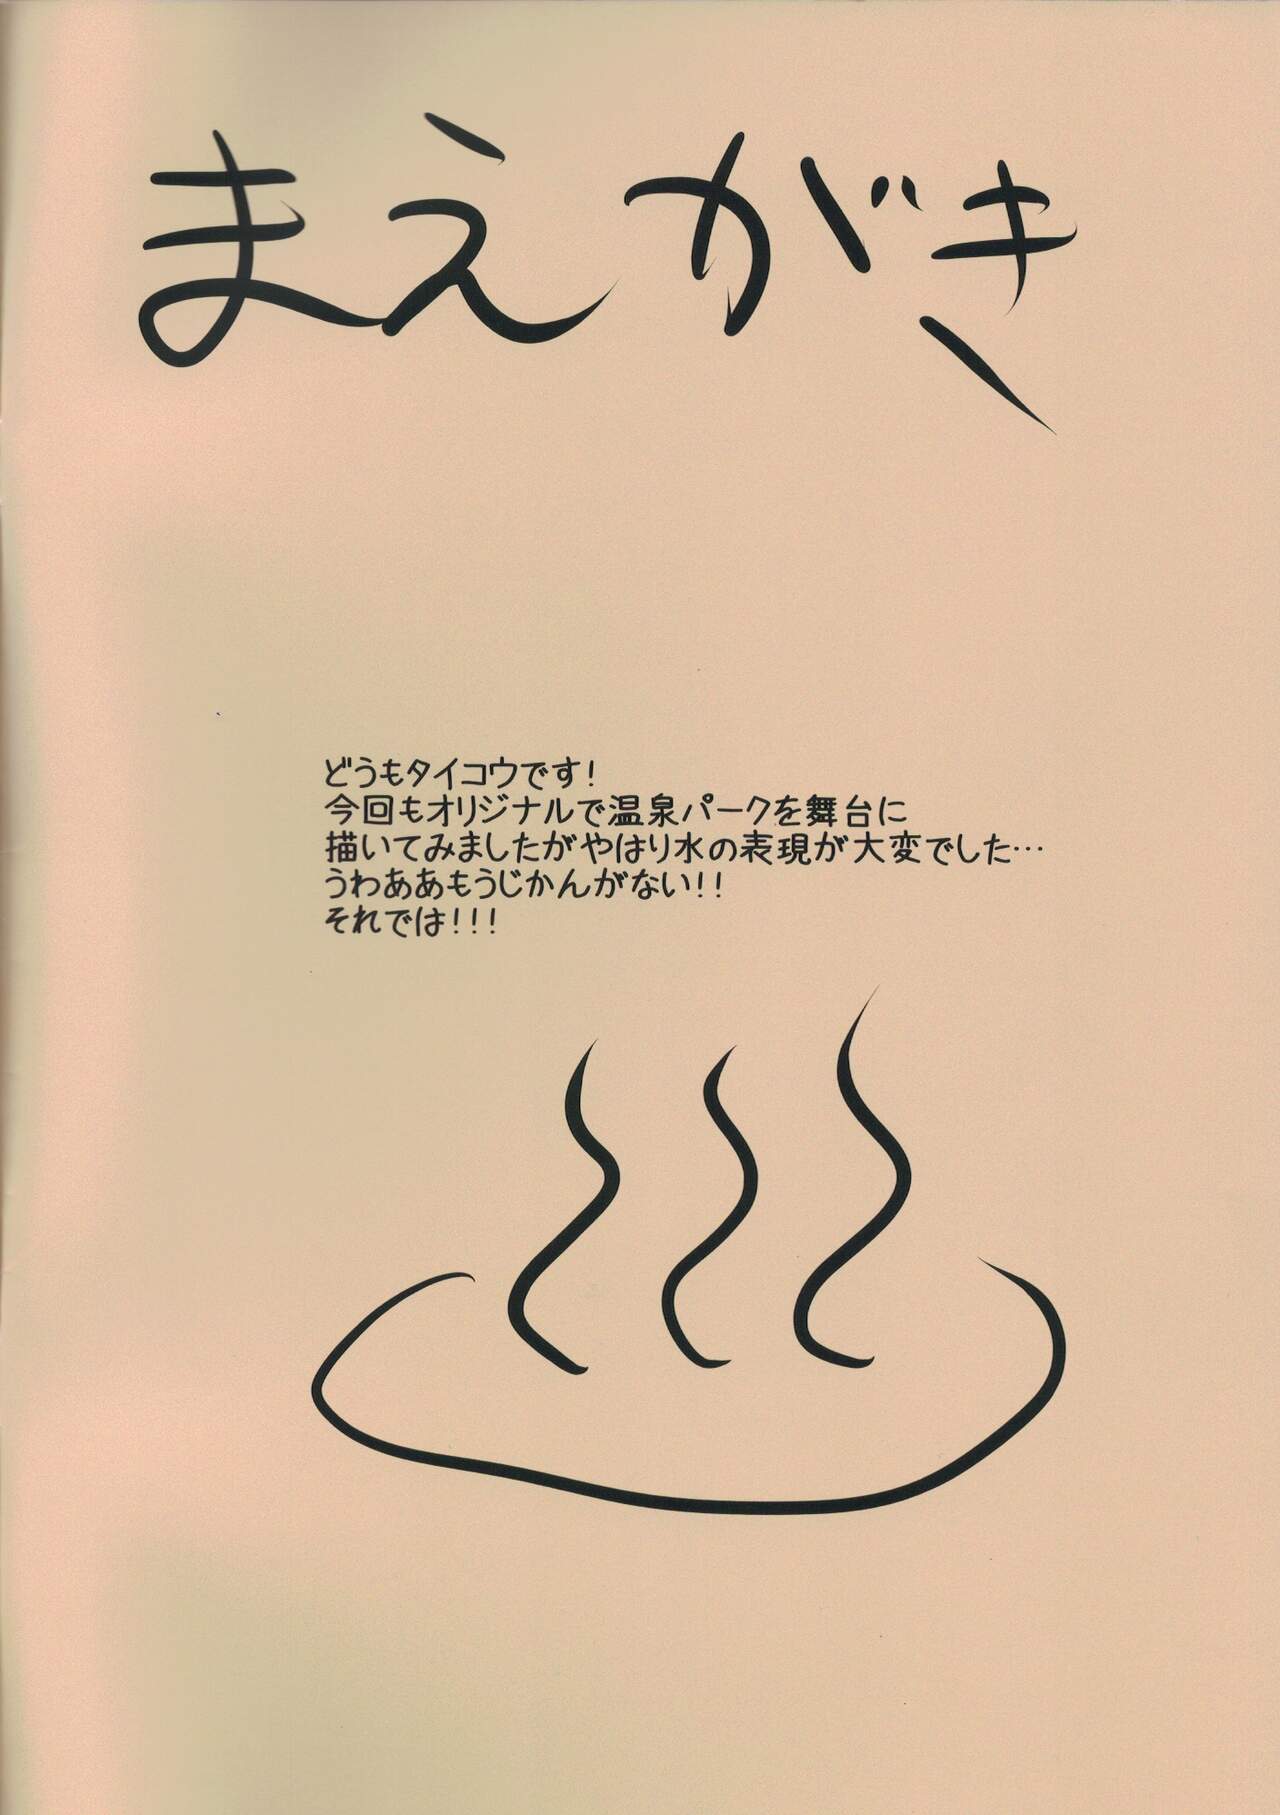 まえがき
どうもタイコウです!
今回もオリジナルで温泉パークを舞台に
描いてみましたがやはり水の表現が大変でした…
うわああもうじかんがない!!
それでは!!!